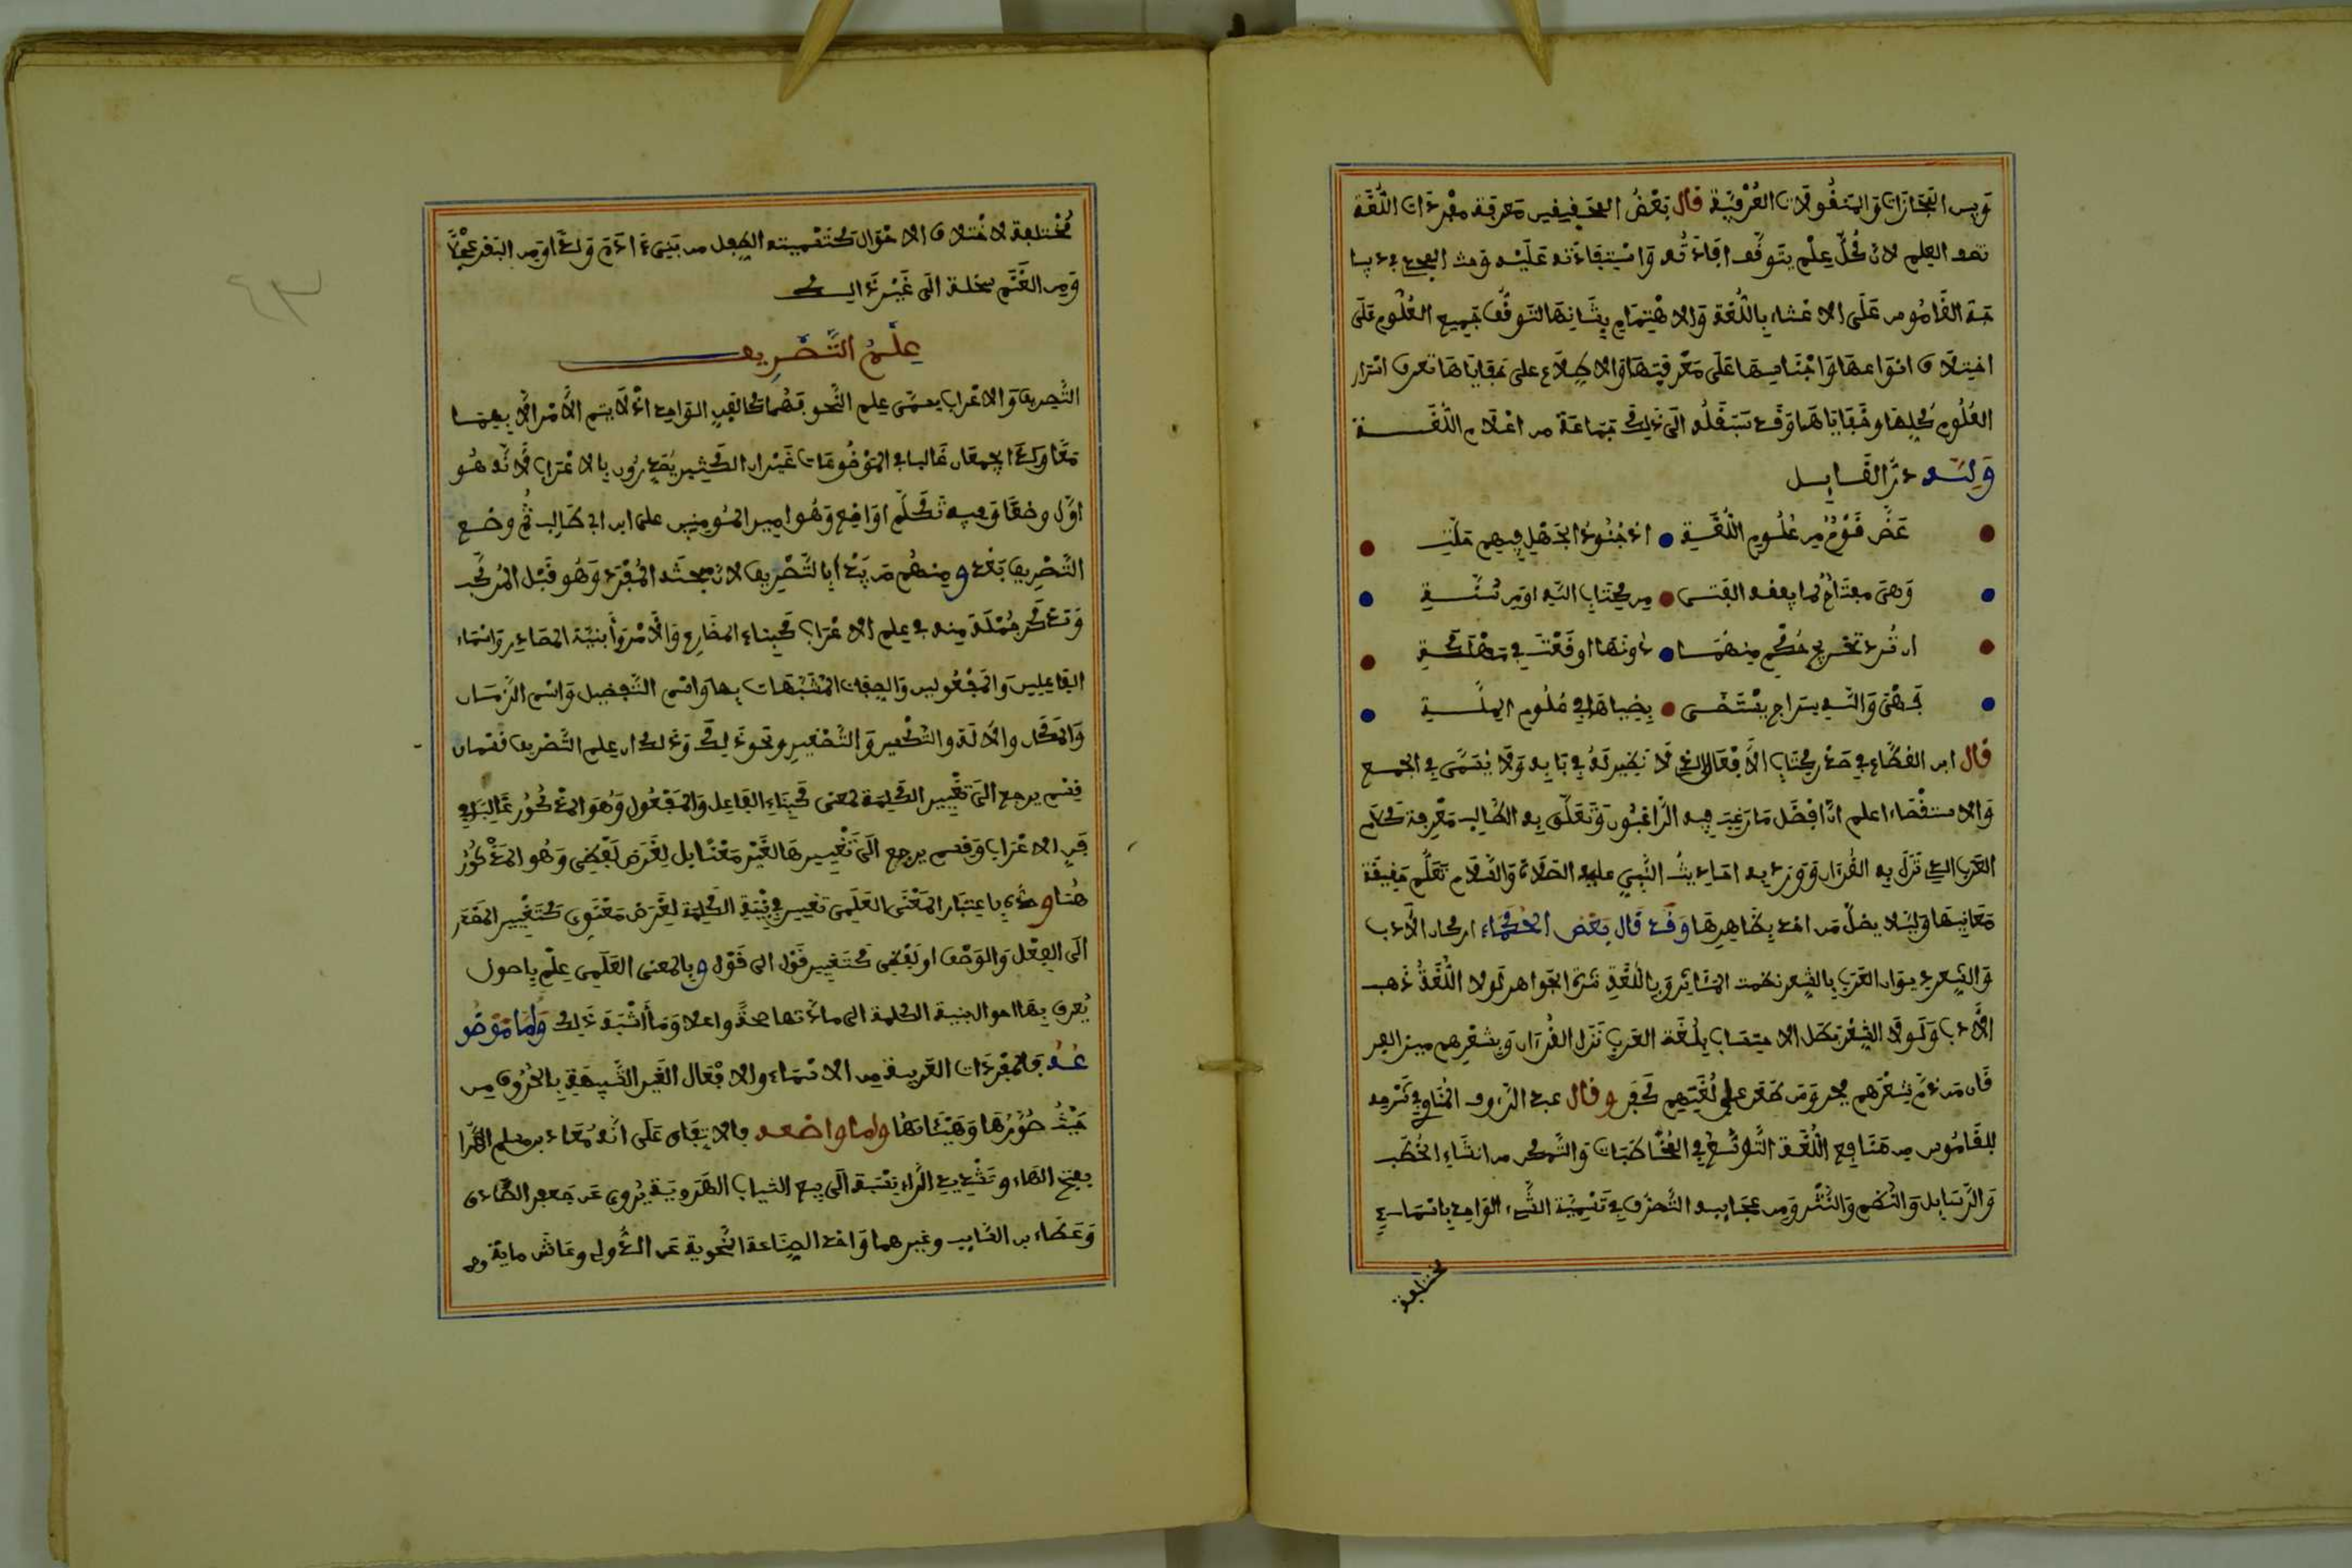 وبين المجازات والمنقولات العرفية قال بعض المحققين معرفة مفردات اللغة
نصف العلم لان كل علم يتوقف افادته واستفادته عليه وقد
القاموس على الاعتناء باللغة والاهتمام بشانها لتوقف جميع العلوم على
اختلاف انواعها واجناسها على معرفتها والاطلاع على خفاياها تعرف اسرار
العلوم كلها وخفاياها وقد سبقه الى ذلك جماعة من اعلام اللغة
ولله در القايل
غض قوم من علوم اللغة اذ جنود الجهل فيهم
وهى مفتاح لما يعفه الفتى من كتاب الله او من سنة
ان ترد تخريج حكم منهما دونها اوقعت في مهلكة
فهى والله سراج يقتفى بضياها في علوم الملة
قال ابن القطاع في صدر كتاب الافعال الذي لا نظير له في بابه ولا يفي في الجمع
والاستقصاء اعلم ان افضل ما رغب فيه الراغبون وتعلق به الطالب معرفة كلام
العرب الذي نزل به القرءان ووردت به احاديث النبي عليه الصلاة والسلام تعلم حقيقة
معانيها وليلا يضل من اخذ بظاهرها وقد قال بعض الحكماء اركان الادب
والشعر ديوان العرب بالشعر نظمت المئاثر وباللغة نثرت الجواهر لولا اللغة ذهب
الادب ولولا الشعر بطل الاحتساب بلغة العرب نزل القرءان وبشعرهم ميز
فان من ذم شعرهم فجر ومن طعن على لغتهم كفر وقال عبد الرءوف المناوي في شرحه
للقاموس من منافع اللغة التوسع في المخاطبات والتمكن من انشاء الخطب
والرسايل والنظم والنثر ومن عجايبه التصرف في تسمية الشيء الواحد باسماء
مختلفة
مختلفة لاختلاف الاحوال كتسميته الطفل من بني ءادم ولدا ومن البقر عجلا
ومن الغنم سخلة الى غير ذلك
علم التصريف
التصريف والاعراب يسمى علم النحو فهما كالفن الواحد اذ لا يتم الامر الا بهما
معا ولذا يجمعان غالبا في الموضوعات غير ان الكثير يصدرون بالاعراب لانه هو
اول وضعا وفيه تكلم اول واضع وهو امير المومنين على ابن ابى طالب ثم وضع
التصريف بعد ومنهم من يبدأ بالتصريف لان مبحثه المفرد وهو قبل المركب
وقد تذكر جملة منه في علم الاعراب كبناء المضارع والامر وأبنية المصادر واسماء
الفاعلين والمفعولين والصفات المشبهات بها واسم التفضيل واسم الزمان
والمكان والالة والتكسير والتصغير ونحو ذلك وذلك ان علم التصريف قسمان
قسم يرجع الى تغيير الكلمة لمعنى كبناء الفاعل والمفعول وهو المذكور غالبا في
فن الاعراب وقسم يرجع الى تغييرها لغير معنا بل لغرض لفظي وهو المذكور
هنا وحده باعتبار المعنى العلمى تغيير في بنية الكلمة لغرض معنوي كتغيير المصدر
الى الفعل والوصف او لفظي كتغيير قول الى قول وبالمعنى العلمى علم باصول
يعرف بها احوال ابنية الكلمة التى ما ذاتها صحة واعلالا وما أشبه ذلك واما موضو
عه فالمفردات العربية من الاسماء والافعال الغير الشبيهة بالحروف من
حيث صورها وهيئاتها واما واضعه فالاتفاق على انه معاذ بن مسلم الهرا
بفتح الهاء وتشديد الراء نسبة الى بيع الثياب الهروية يروي عن جعفر الصادق
وعطاء بن السايب وغيرهما واخذ الصناعة النحوية عن الدؤلي وعاش ماية